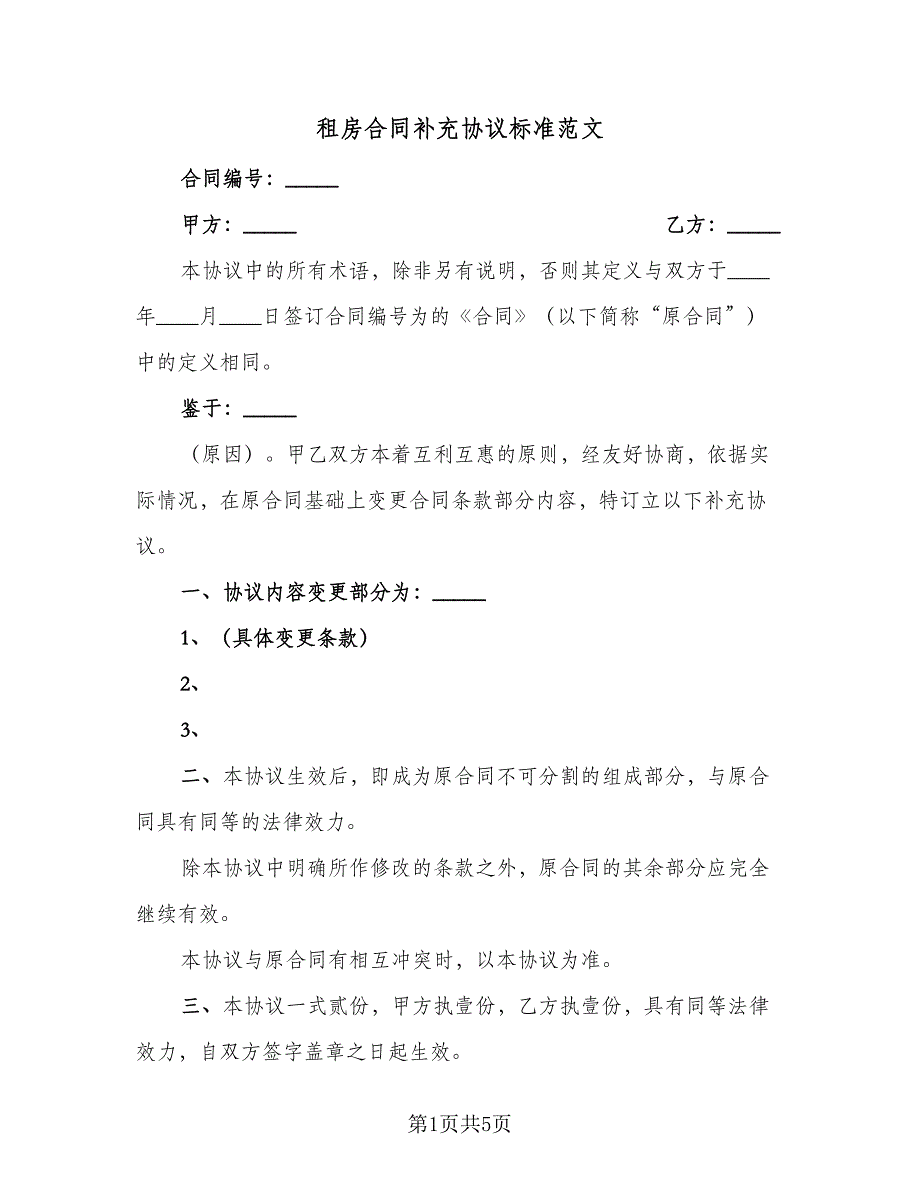 租房合同补充协议标准范文
合同编号：_____
甲方：_____ 乙方：_____
本协议中的所有术语，除非另有说明，否则其定义与双方于____
年____月____日签订合同编号为的《合同》（以下简称“原合同”）
中的定义相同。
鉴于：_____
（原因）。甲乙双方本着互利互惠的原则，经友好协商，依据实
际情况，在原合同基础上变更合同条款部分内容，特订立以下补充协
议。
一、协议内容变更部分为：_____
1、（具体变更条款）
2、
3、
二、本协议生效后，即成为原合同不可分割的组成部分，与原合
同具有同等的法律效力。
除本协议中明确所作修改的条款之外，原合同的其余部分应完全
继续有效。
本协议与原合同有相互冲突时，以本协议为准。
三、本协议一式贰份，甲方执壹份，乙方执壹份，具有同等法律
效力，自双方签字盖章之日起生效。
第1页共5页